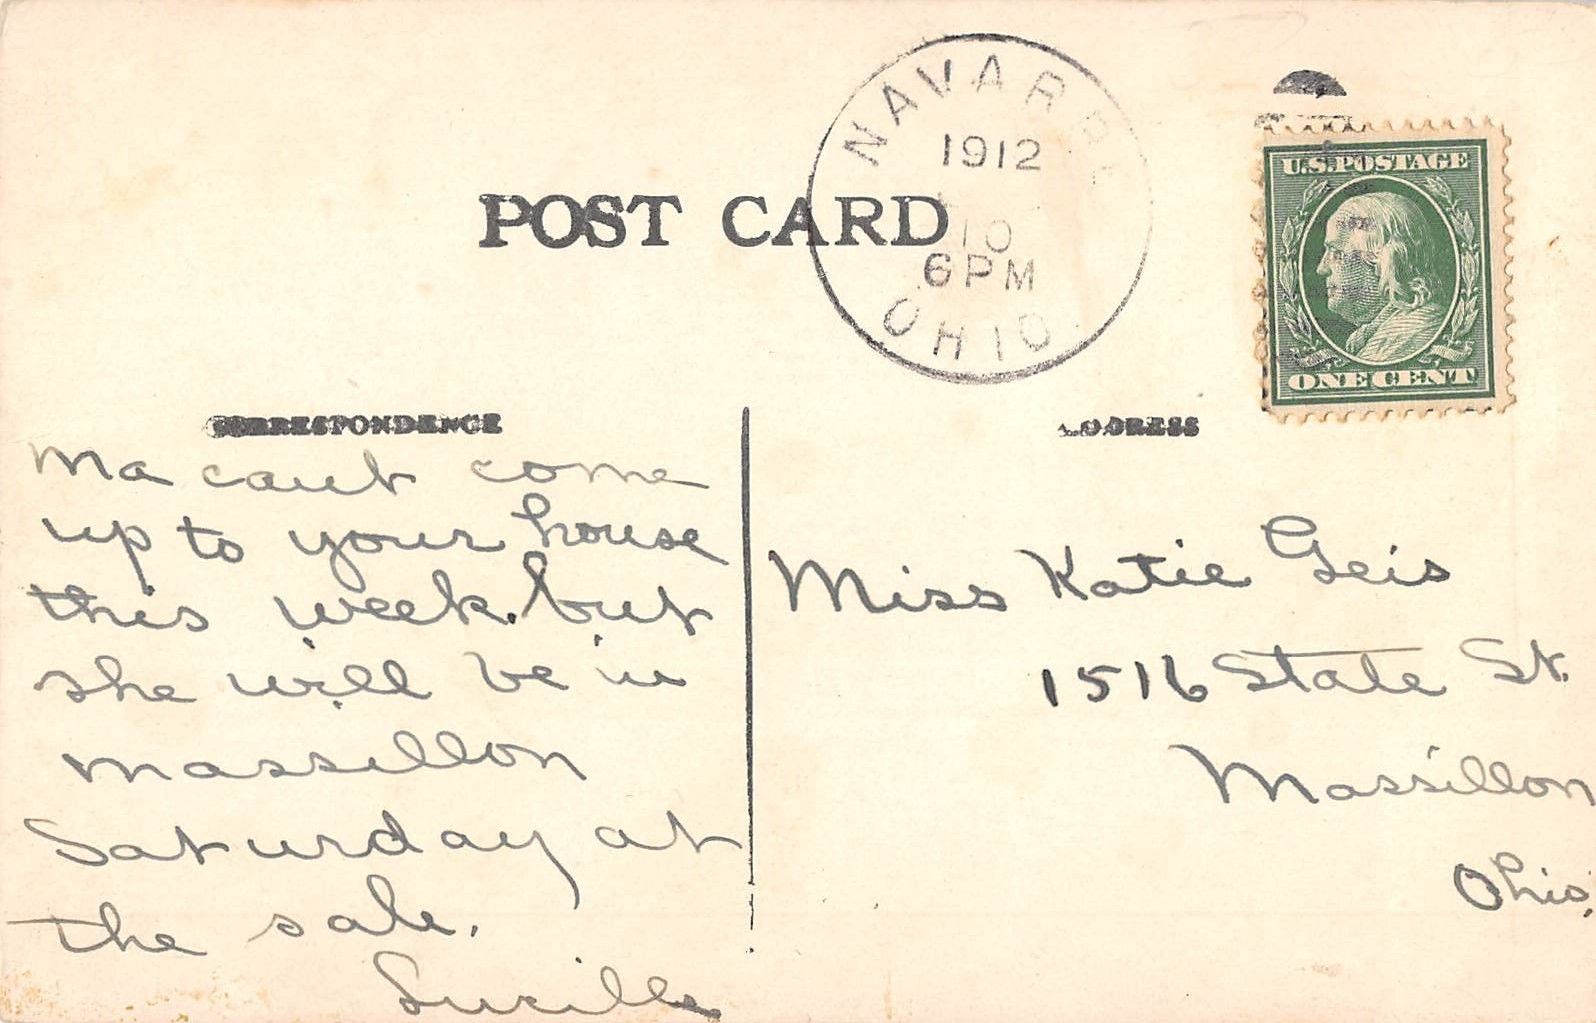 NAVARRE
1912
10
6 PM
OHIO
U.S. POSTAGE
ONE CENT
POST CARD
CORRESPONDENCE
ADDRESS
Ma cant come
up to your house
this week. but
she will be in
Massillon
Saturday at
the sale.
Lucille
Miss Katie Geis
1516 State St.
Massillon
Ohio.